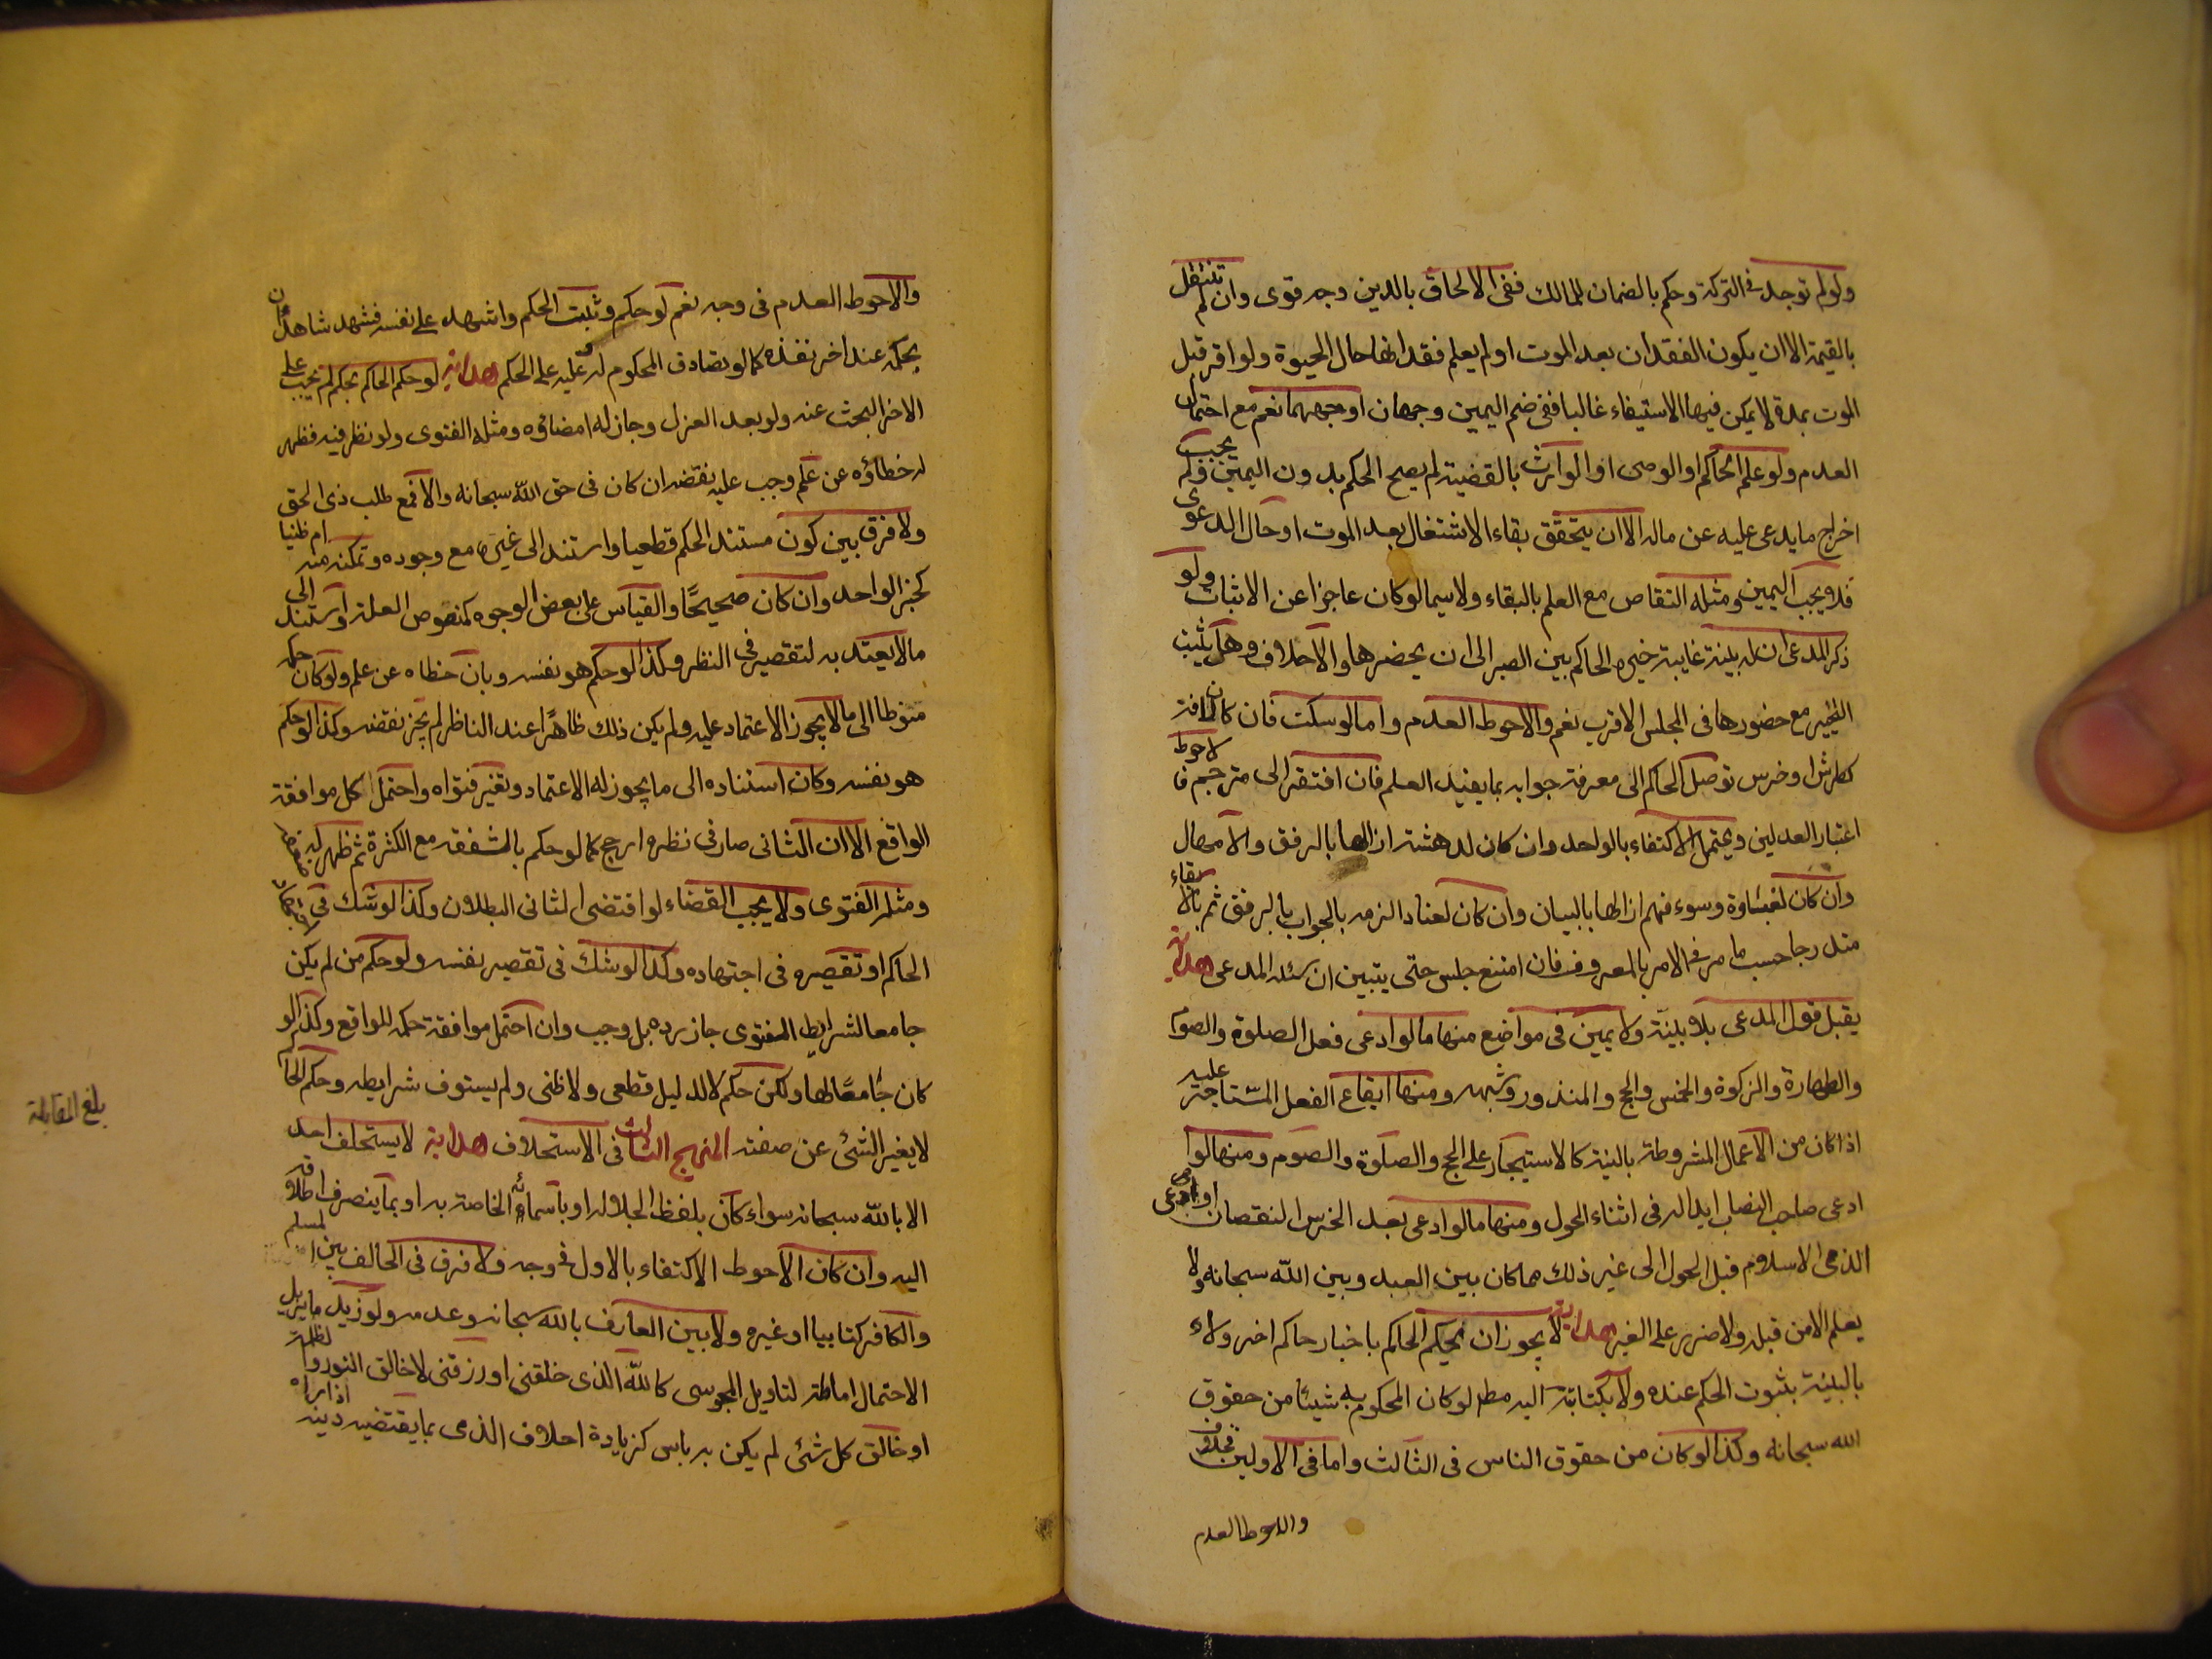 ولو لم توجد فى التركة وحكم بالضمان للمالك ففى الالحاق بالدين وجه قوى وان لم تنتقل
بالقيمة الا ان يكون الفقدان بعد الموت او لم يعلم فقدانها حال الحيوة ولو اقر قبل
الموت بمدة لا يمكن فيها الاستيفاء غالبا ففى ضم اليمين وجهان اوجههما نعم مع احتمال
العدم ولو علم الحاكم او الوصى او الوارث بالقضية لم يصح الحكم بدون اليمين ولم يجب
اخراج ما يدعى عليه عن ماله الا ان يتحقق بقاء الاشتغال بعد الموت او حال الدعوى
فلا ويجب اليمين ومثله التقاص مع العلم بالبقاء ولا سيما لو كان عاجزا عن الاثبات ولو
ذكر المدعى ان له بينة غايبة خيره الحاكم بين الصبر الى ان يحضرها والاحلاف وهل يثبت
التخيير مع حضورها فى المجلس الاقرب نعم والاحوط العدم واما لو سكت فان كان لآفة
كطرش او خرس توصل الحاكم الى معرفة جوابه بما يفيد العلم فان افتقر الى مترجم فالاحوط
اعتبار العدلين ويحتمل الاكتفاء بالواحد وان كان لدهشة ازالها بالرفق والامهال
وان كان لغباوة وسوء فهم ازالها بالبيان وان كان لعناد الزمه بالجواب بالرفق ثم بالايقاء
متدرجا حسب ما مر فى الامر بالمعروف فان امتنع حبس حتى يتبين ان سئله المدعى هداية
يقبل قول المدعى بلا بينة ولا يمين فى مواضع منها ما لو ادعى فعل الصلوة والصوم
والطهارة والزكوة والخمس والحج والمنذور وشبهه ومنها ايقاع الفعل المستاجر عليه
اذا كان من الاعمال المشروطة بالنية كالاستيجار على الحج والصلوة والصوم ومنها لو
ادعى صاحب النصاب ابداله فى اثناء الحول ومنها ما لو ادعى بعد الخرص النقصان او ادعى
الذمى الاسلام قبل الحول الى غير ذلك مما كان بين العبد وبين الله سبحانه ولا
يعلم الا من قبله ولا ضرر على الغير هداية لا يجوز ان يحكم الحاكم باخبار حاكم اخر ولا
بالبينة بثبوت الحكم عنده ولا بكتابته اليه مطلقا لو كان المحكوم به شيئا من حقوق
الله سبحانه وكذا لو كان من حقوق الناس فى الثالث واما فى الاولين فخلاف
والاحوط العدم
والاحوط العدم فى وجه نعم لو حكم وثبت الحكم واشهد على نفسه فشهد شاهدان
بحكمه عند اخر نفذه كما لو تصادف المحكوم له وعليه على الحكم هداية لو حكم الحاكم بحكم لم يجب على
الاخر البحث عنه ولو بعد العزل وجاز له امضاؤه ومثله الفتوى ولو نظر فيه فظهر
له خطاؤه عن علم وجب عليه نقضه ان كان فى حق الله سبحانه والا فمع طلب ذى الحق
ولا فرق بين كون مستند الحكم قطعيا ام ظنيا او استند الى غيره مع وجوده وتمكنه منه
كخبر الواحد وان كان صحيحًا والقياس على بعض الوجوه كمنصوص العلة او استند الى
ما لا يعتد به لتقصيره فى النظر وكذا لو حكم هو نفسه وبان خطاه عن علم ولو كان حكمه
منوطا الى ما لا يجوز الاعتماد عليه ولم يكن ذلك ظاهرًا عند الناظر لم يجز نقضه وكذا لو حكم
هو نفسه وكان استناده الى ما يجوز له الاعتماد وتغير فتواه واحتمل كل موافقة
الواقع الا ان الثانى صار فى نظره ارجح كما لو حكم بالشفعة مع الكثرة ثم ظهر له
ومثله الفتوى ولا يجب القضاء لو اقتضى الثانى البطلان وكذا لو شك فى
الحاكم او تقصيره فى اجتهاده وكذا لو شك فى تقصير نفسه ولو حكم من لم يكن
جامعا لشرايط الفتوى جاز رده بل وجب وان احتمل موافقة حكمه للواقع وكذا لو
كان جامعًا لها ولكن حكم لا لدليل قطعى ولا ظنى ولم يستوف شرايطه وحكم الحاكم
لا يغير الشئ عن صفته المنهج الثالث فى الاستحلاف هداية لا يستحلف احد
الا بالله سبحانه سواء كان بلفظ الجلالة او باسمائه الخاصة به او بما ينصرف اطلاقه
اليه وان كان الاحوط الاكتفاء بالاول فى وجه ولا فرق فى الحالف بين المسلم
والكافر كتابيا او غيره ولا بين العارف بالله سبحانه وعدمه ولو زيد ما يزيل
الاحتمال اماطة لتاويل المجوسى كالله الذى خلقنى او رزقنى لا خالق النور والظلمة
او خالق كل شئ لم يكن به باس كزيادة احلاف الذمى بما يقتضيه دينه اذا راه
بلغ المقابلة